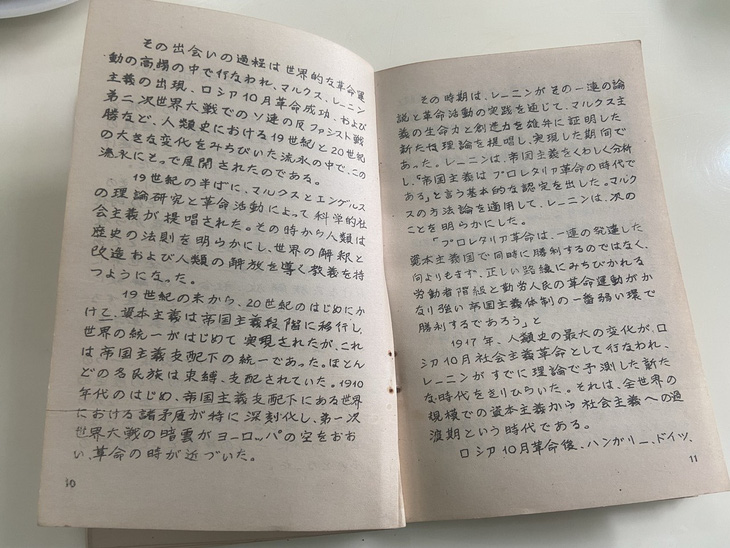 その出会いの過程は世界的な革命運
動の高揚の中で行なわれ、マルクス、レーニン
主義の出現、ロシア10月革命成功、および
第二次世界大戦でのソ連の反ファシスト戦
勝など、人類史における19世紀と20世紀
の大きな変化をみちびいた流氷の中で、この
流氷にそって展開されたのである。
19世紀の半ばに、マルクスとエンゲルス
の理論研究と革命活動によって科学的社
会主義が提唱された。その時から人類は
歴史の法則を明らかにし、世界の解釈と
改造および人類の解放を導く教義を持
つようになった。
19世紀の末から、20世紀のはじめにか
けて、資本主義は帝国主義段階に移行し、
世界の統一がはじめて実現されたが、これ
は帝国主義支配下の統一であった。ほとん
どの各民族は束縛、支配されていた。1910
年代のはじめ、帝国主義支配下にある世界
における諸矛盾が特に深刻化し、第一次
世界大戦の暗雲がヨーロッパの空をおお
い、革命の時が近づいた。
10
その時期は、レーニンがその一連の論
説と革命活動の実践を通じて、マルクス主
義の生命力と創造力を雄弁に証明した
新たな理論を提唱し、実現した期間で
あった。レーニンは、帝国主義をくわしく分析
し、「帝国主義はプロレタリア革命の時代で
ある」と言う基本的な認定を出した。マルク
スの方法論を適用して、レーニンは、次の
ことを明らかにした。
「プロレタリア革命は、一連の発達した
資本主義国で同時に勝利するのではなく、
何よりもまず、正しい路線にみちびかれる
労働者階級と勤労人民の革命運動がか
なり強い帝国主義体制の一番弱い環で
勝利するであろう」と
1917年、人類史の最大の変化が、ロ
シア10月社会主義革命として行なわれ、
レーニンがすでに理論で予測した新た
な時代をきりひらいた。それは、全世界の
規模での資本主義から社会主義への過
渡期という時代である。
ロシア10月革命後、ハンガリー、ドイツ、
11